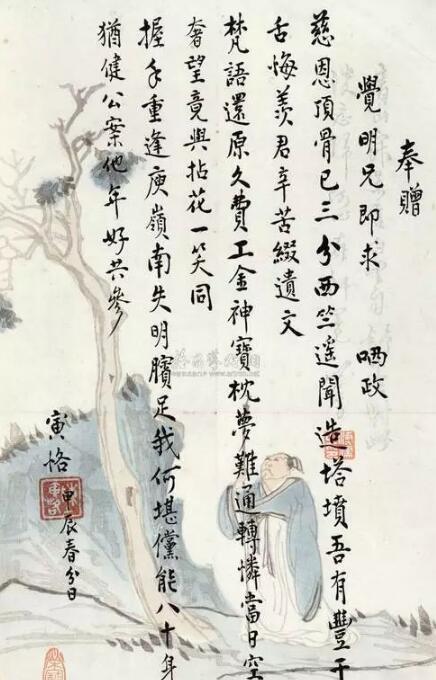 奉贈
覺明兄即求　哂政
慈恩頂骨已三分西竺遥聞造塔墳吾有豐干
舌悔羨君辛苦綴遺文
梵語還原久費工金神寶枕夢難通轉憐當日空
奢望竟與拈花一笑同
握手重逢庾嶺南失明臏足我何堪儻能八十身
猶健公案他年好共參
寅恪
甲辰春分日